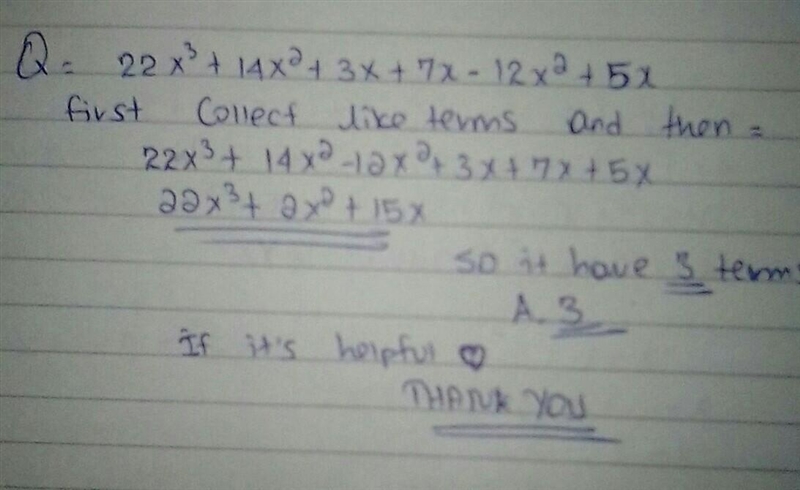 Q = 22x³ + 14x² + 3x + 7x - 12x² + 5x
first Collect like terms and then =
22x³ + 14x² - 12x² + 3x + 7x + 5x
22x³ + 2x² + 15x
So it have 3 terms
A. 3
If it's helpful ♡
THANK YOU